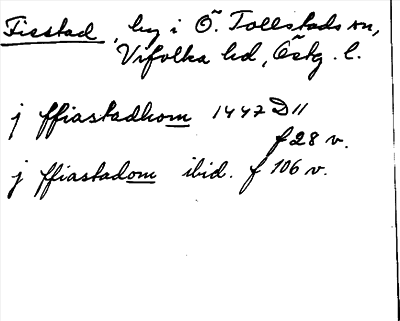 Fisstad, by i Ö. Tollstads sn,
Vifolka hd, Östg. l.
j ffiastadhom 1447 D11
f 28 v.
j ffiastadom ibid. f 106 v.